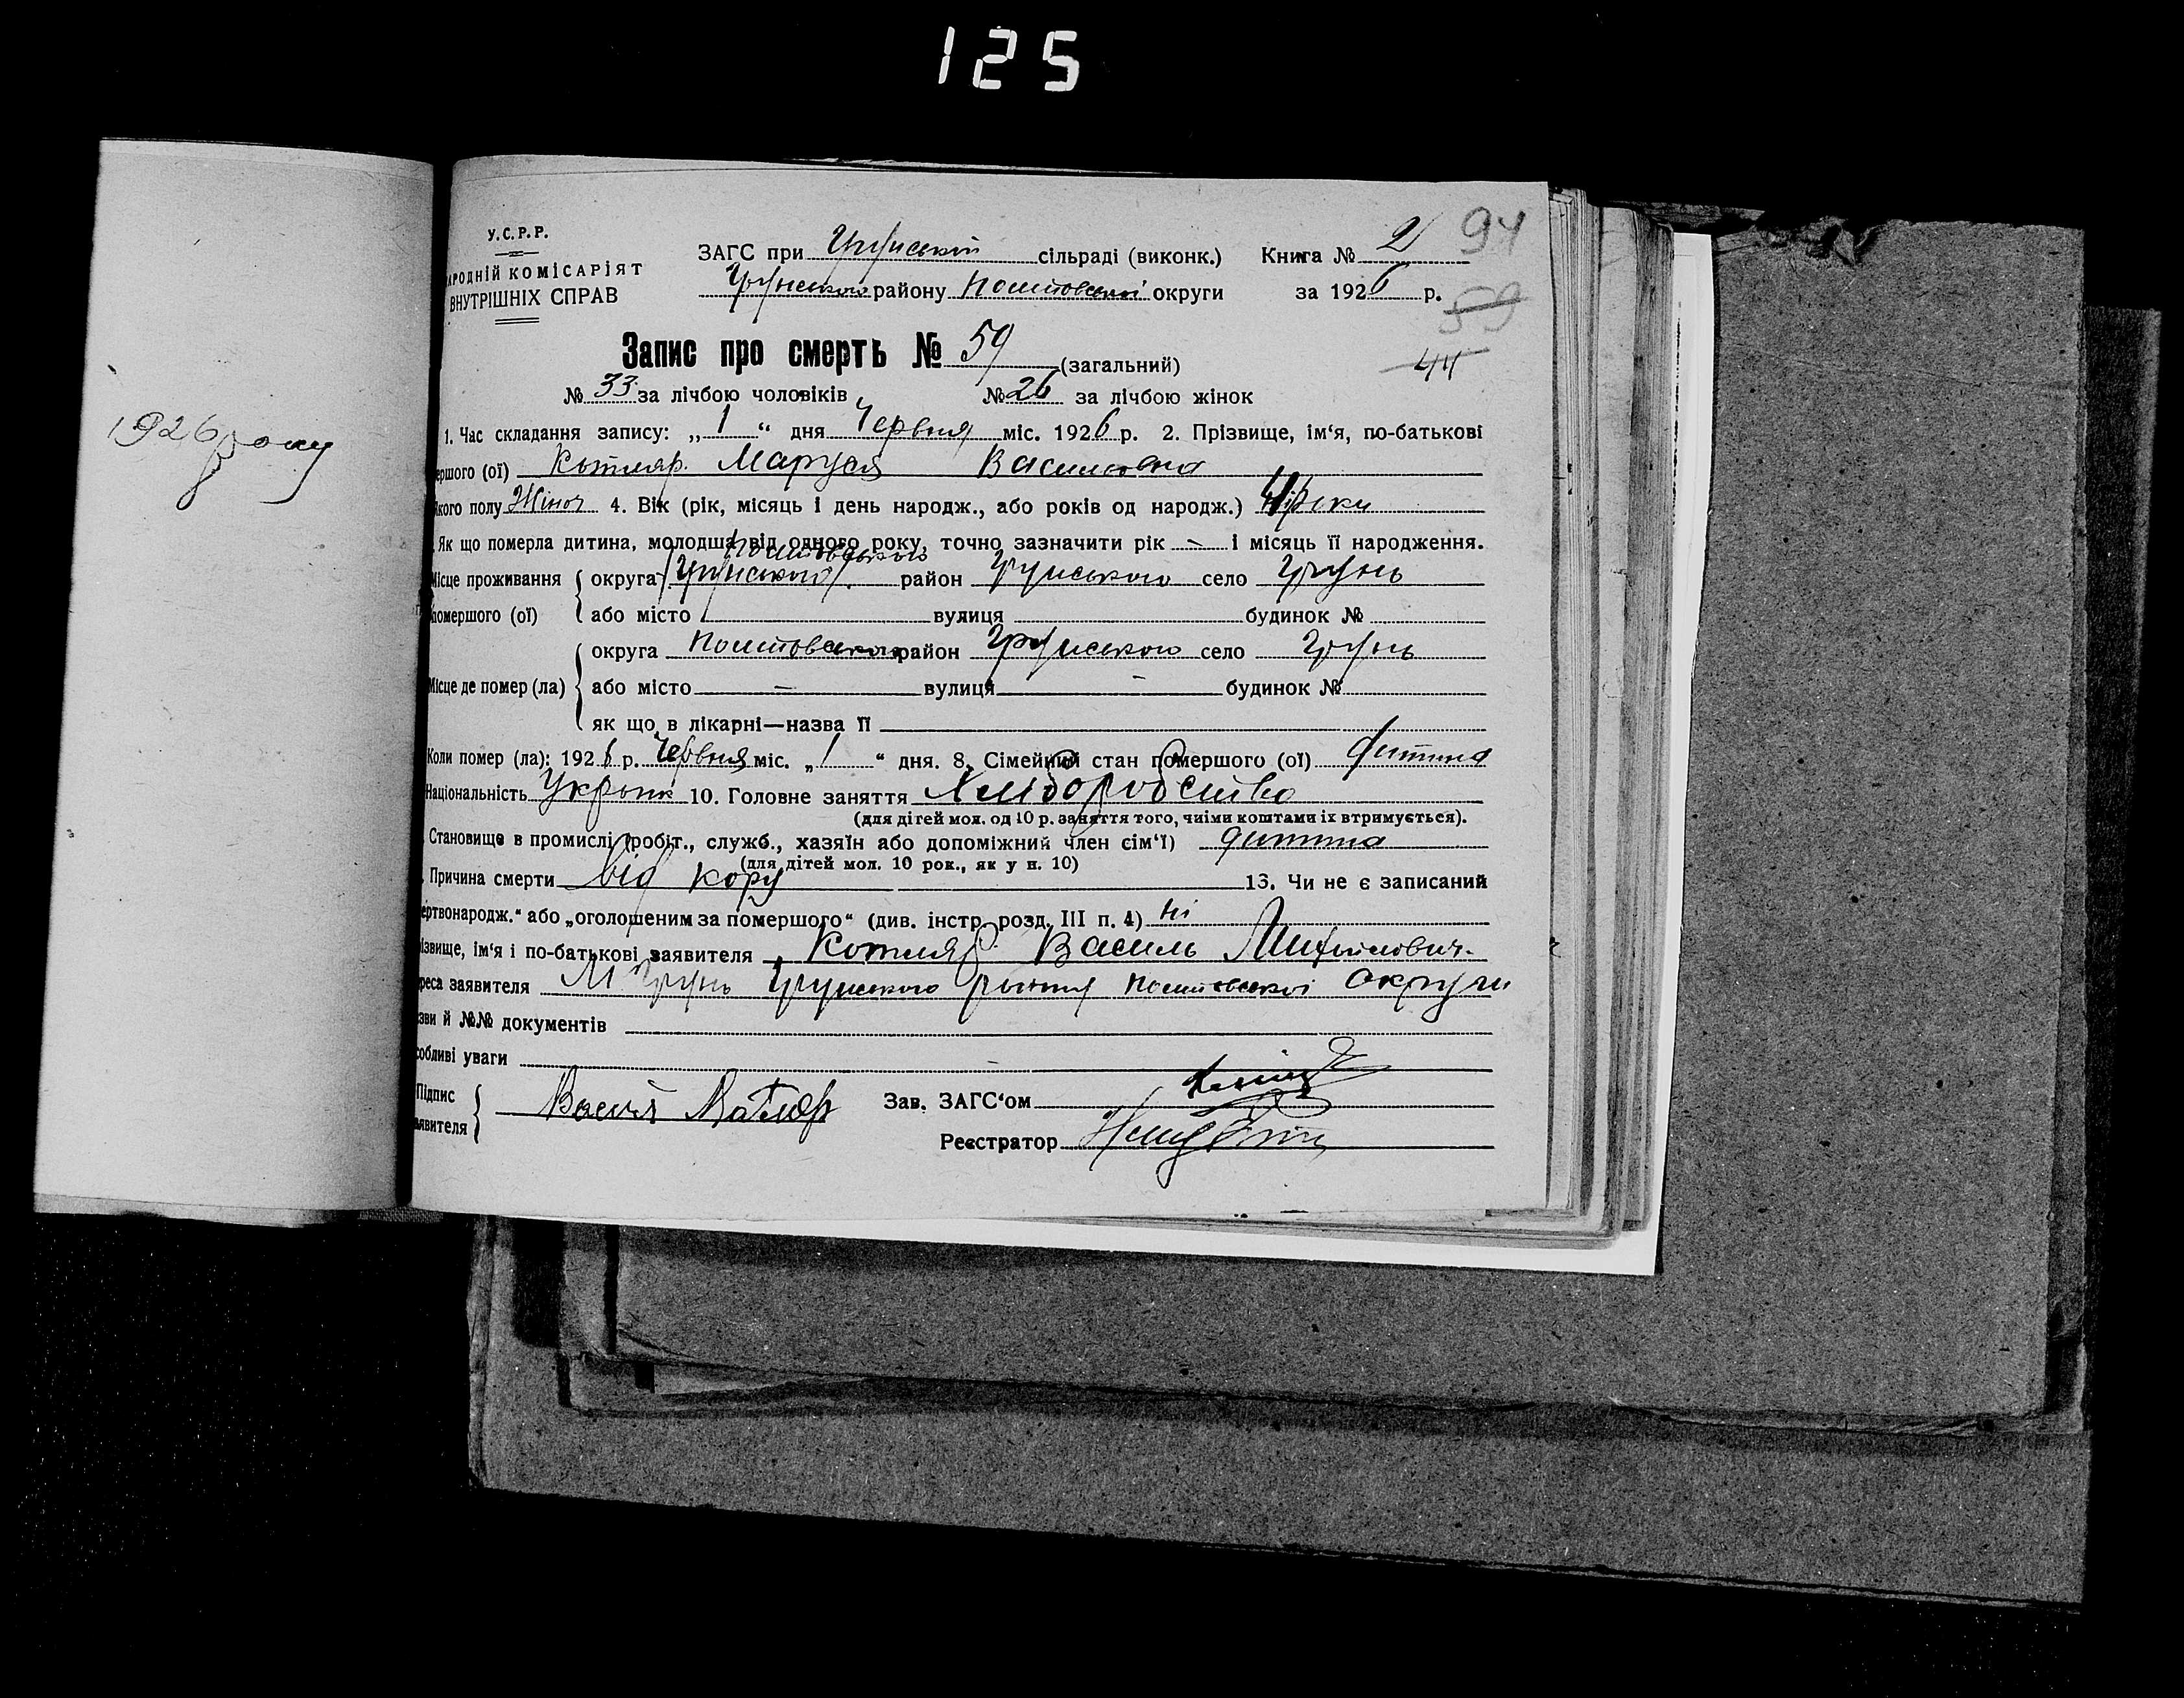 125
У.С.Р.Р.
АРОДНІЙ КОМІСАРІЯТ
ВНУТРІШНІХ СПРАВ
ЗАГС при Грунській сільраді (виконк.) Книга № 2 94
Грунського району Полтовської округи за 1926 р.
59
Запис про смерть № 59 (загальний)
44
№ 33 за лічбою чоловіків, № 26 за лічбою жінок
1926 року
1. Час складання запису: „ 1 “ дня Червня міс. 1926 р. 2. Прізвище, ім‘я, по-батькові
ершого (ої) Котляр Маруся Василовна
якого полу Жіноч 4. Вік (рік, місяць і день народж., або років од народж.) 4 роки
Як що померла дитина, молодша від одного року, точно зазначити рік — і місяць її народження.
Полтовського
Місце проживання округа Грунського район Грунського село Грунь
помершого (ої) або місто вулиця будинок №
округа Полтовського район Грунського село Грунь
Місце де помер (ла) або місто — вулиця — будинок №
як що в лікарні—назва її
Коли помер (ла): 1926 р. Червня міс. „ 1 “ дня. 8. Сімейний стан помершого (ої) дитина
Національність Україн 10. Головне заняття Хліборобство
(для дітей мол. од 10 р. заняття того, чиїми коштами їх втримується).
Становище в промислі (робіт., служб., хазяїн або допоміжний член сім‘ї) дитина
(для дітей мол. 10 рок., як у п. 10)
Причина смерти від кору 13. Чи не є записаний
ертвонародж.“ або „оголошеним за помершого“ (див. інстр. розд. III п. 4) ні
ізвище, ім‘я і по-батькові заявителя Котляр Василь Михайлович
реса заявителя М Грунь Грунського району Полтовської округи
зви й №№ документів
собливі уваги
Підпис
аявителя Василь Котляр Зав. ЗАГС‘ом
Реєстратор